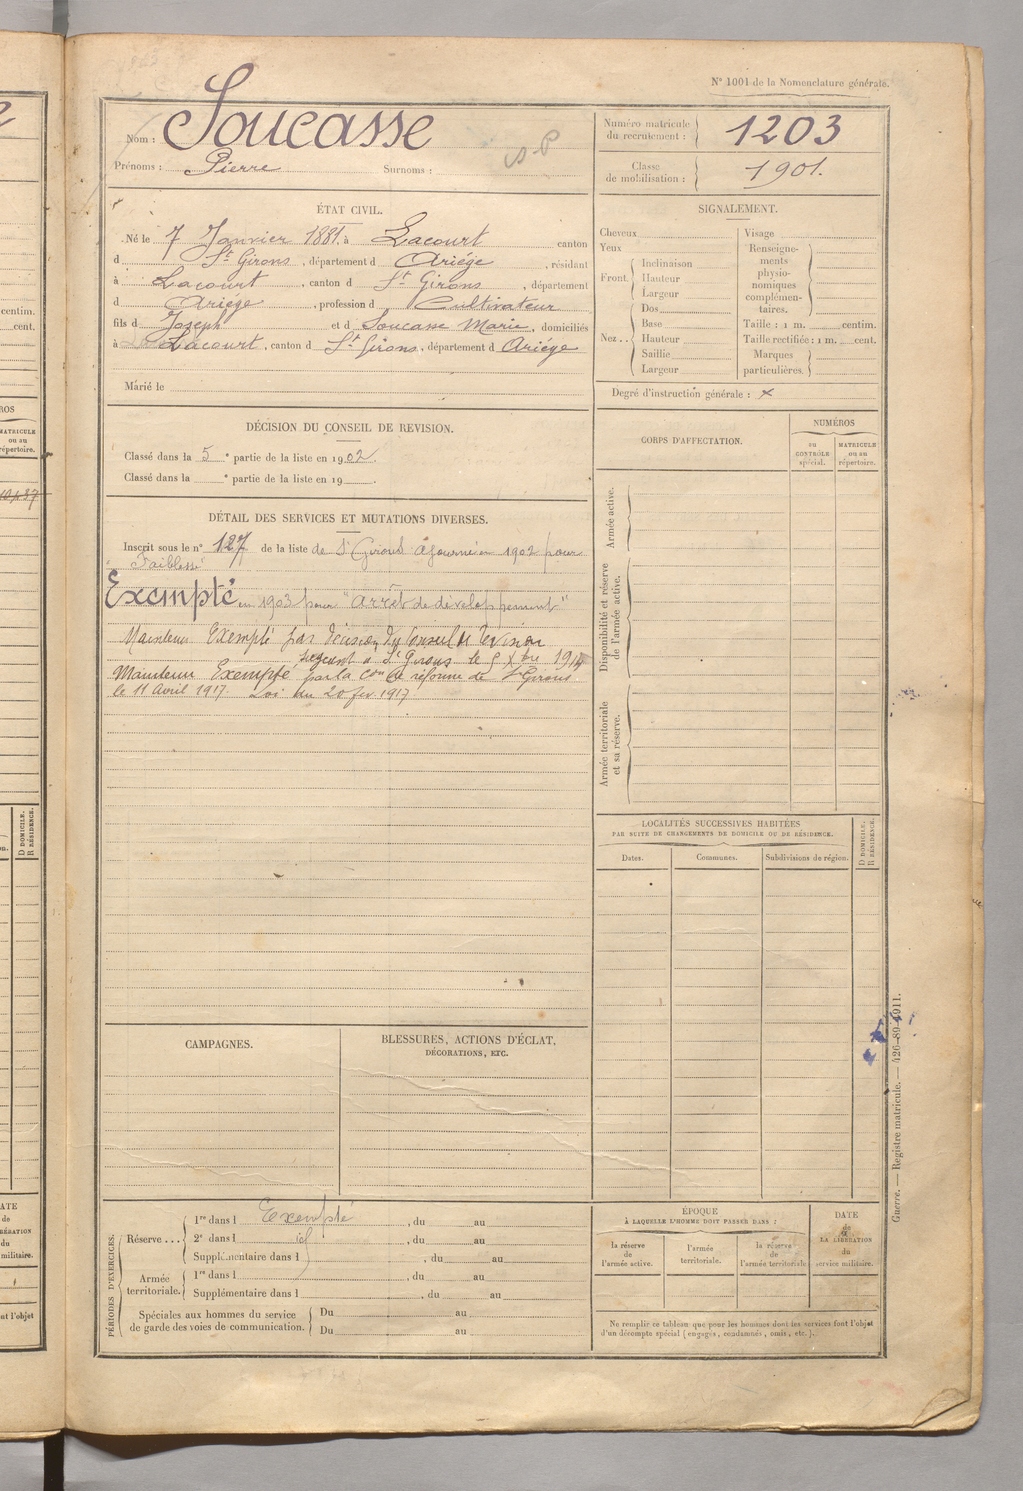 N° 1001 de la Nomenclature générale.
Nom : Soucasse
Prénoms : Pierre Surnoms :
S-P
Numéro matricule du recrutement : 1203
Classe de mobilisation : 1901.
ÉTAT CIVIL.
Né le 7 Janvier 1881. à Lacourt canton
d St Girons, département d Ariége, résidant
à Lacourt, canton d St Girons, département
d Ariége, profession d Cultivateur
fils d Joseph et d Soucasse Marie, domiciliés
à Lacourt, canton d St Girons, département d Ariége
Marié le
SIGNALEMENT.
Cheveux
Yeux
Front. Inclinaison
Hauteur
Largeur
Nez.. Dos
Base
Hauteur
Saillie
Largeur
Visage
Renseigne-
ments
physio-
nomiques
complémen-
taires.
Taille : 1 m. centim.
Taille rectifiée : 1 m. cent.
Marques
particulières.
Degré d'instruction générale : x
DÉCISION DU CONSEIL DE REVISION.
Classé dans la 5 e partie de la liste en 1902.
Classé dans la e partie de la liste en 19 .
CORPS D'AFFECTATION.
NUMÉROS
au CONTRÔLE spécial.
MATRICULE ou au répertoire.
Armée active.
Disponibilité et réserve de l'armée active.
Armée territoriale et sa réserve.
DÉTAIL DES SERVICES ET MUTATIONS DIVERSES.
Inscrit sous le n° 127 de la liste de St Girons Ajourné en 1902 pour
"Faiblesse"
Exempté en 1903 pour "Arrêt de développement"
Maintenu Exempté par décision du Conseil de Revision
siégeant à St Girons le 5 Xbre 1914
Maintenu Exempté par la Con de réforme de St Girons
le 11 Avril 1917. Loi du 20 fev 1917
LOCALITÉS SUCCESSIVES HABITÉES
PAR SUITE DE CHANGEMENTS DE DOMICILE OU DE RÉSIDENCE.
Dates.
Communes.
Subdivisions de région.
D DOMICILE.
R RÉSIDENCE.
CAMPAGNES.
BLESSURES, ACTIONS D'ÉCLAT,
DÉCORATIONS, ETC.
PÉRIODES D'EXERCICES.
Réserve ... 1re dans l Exempté, du au
2e dans l id, du au
Supplémentaire dans l , du au
Armée territoriale. 1re dans l , du au
Supplémentaire dans l , du au
Spéciales aux hommes du service
de garde des voies de communication. Du au
Du au
ÉPOQUE
À LAQUELLE L'HOMME DOIT PASSER DANS :
la réserve de l'armée active.
l'armée territoriale.
la réserve de l'armée territoriale
DATE
de
LA LIBÉRATION
du
service militaire.
Ne remplir ce tableau que pour les hommes dont les services font l'objet
d'un décompte spécial (engagés, condamnés, omis, etc.).
Guerre. — Registre matricule. — 426-89-1911.
centim.
cent.
MATRICULE
ou au
répertoire.
D DOMICILE.
R RÉSIDENCE.